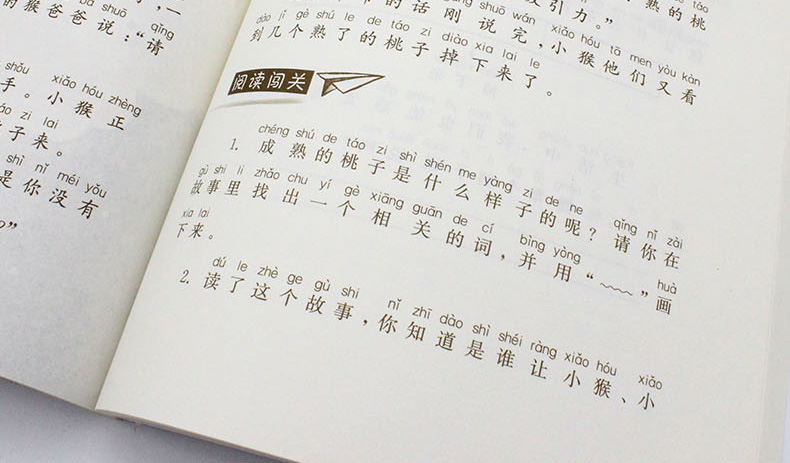 的猴爸爸说：“请
shǒu xiǎo hóu zhèng
手。小猴正
zi lai
子来。
shì nǐ méi yǒu
是你没有
的话刚说完，小猴他们又看
dào jǐ gè shú le de táo zi diào xia lai le
到几个熟了的桃子掉下来了。
阅读闯关
chéng shú de táo zi shì shén me yàng zi de ne qǐng nǐ zài
1. 成熟的桃子是什么样子的呢？请你在
gù shi li zhǎo chu yí gè xiāng guān de cí bìng yòng huà
故事里找出一个相关的词，并用“﹏﹏”画
xia lai
下来。
dú le zhè ge gù shi nǐ zhī dào shì shéi ràng xiǎo hóu xiǎo
2. 读了这个故事，你知道是谁让小猴、小